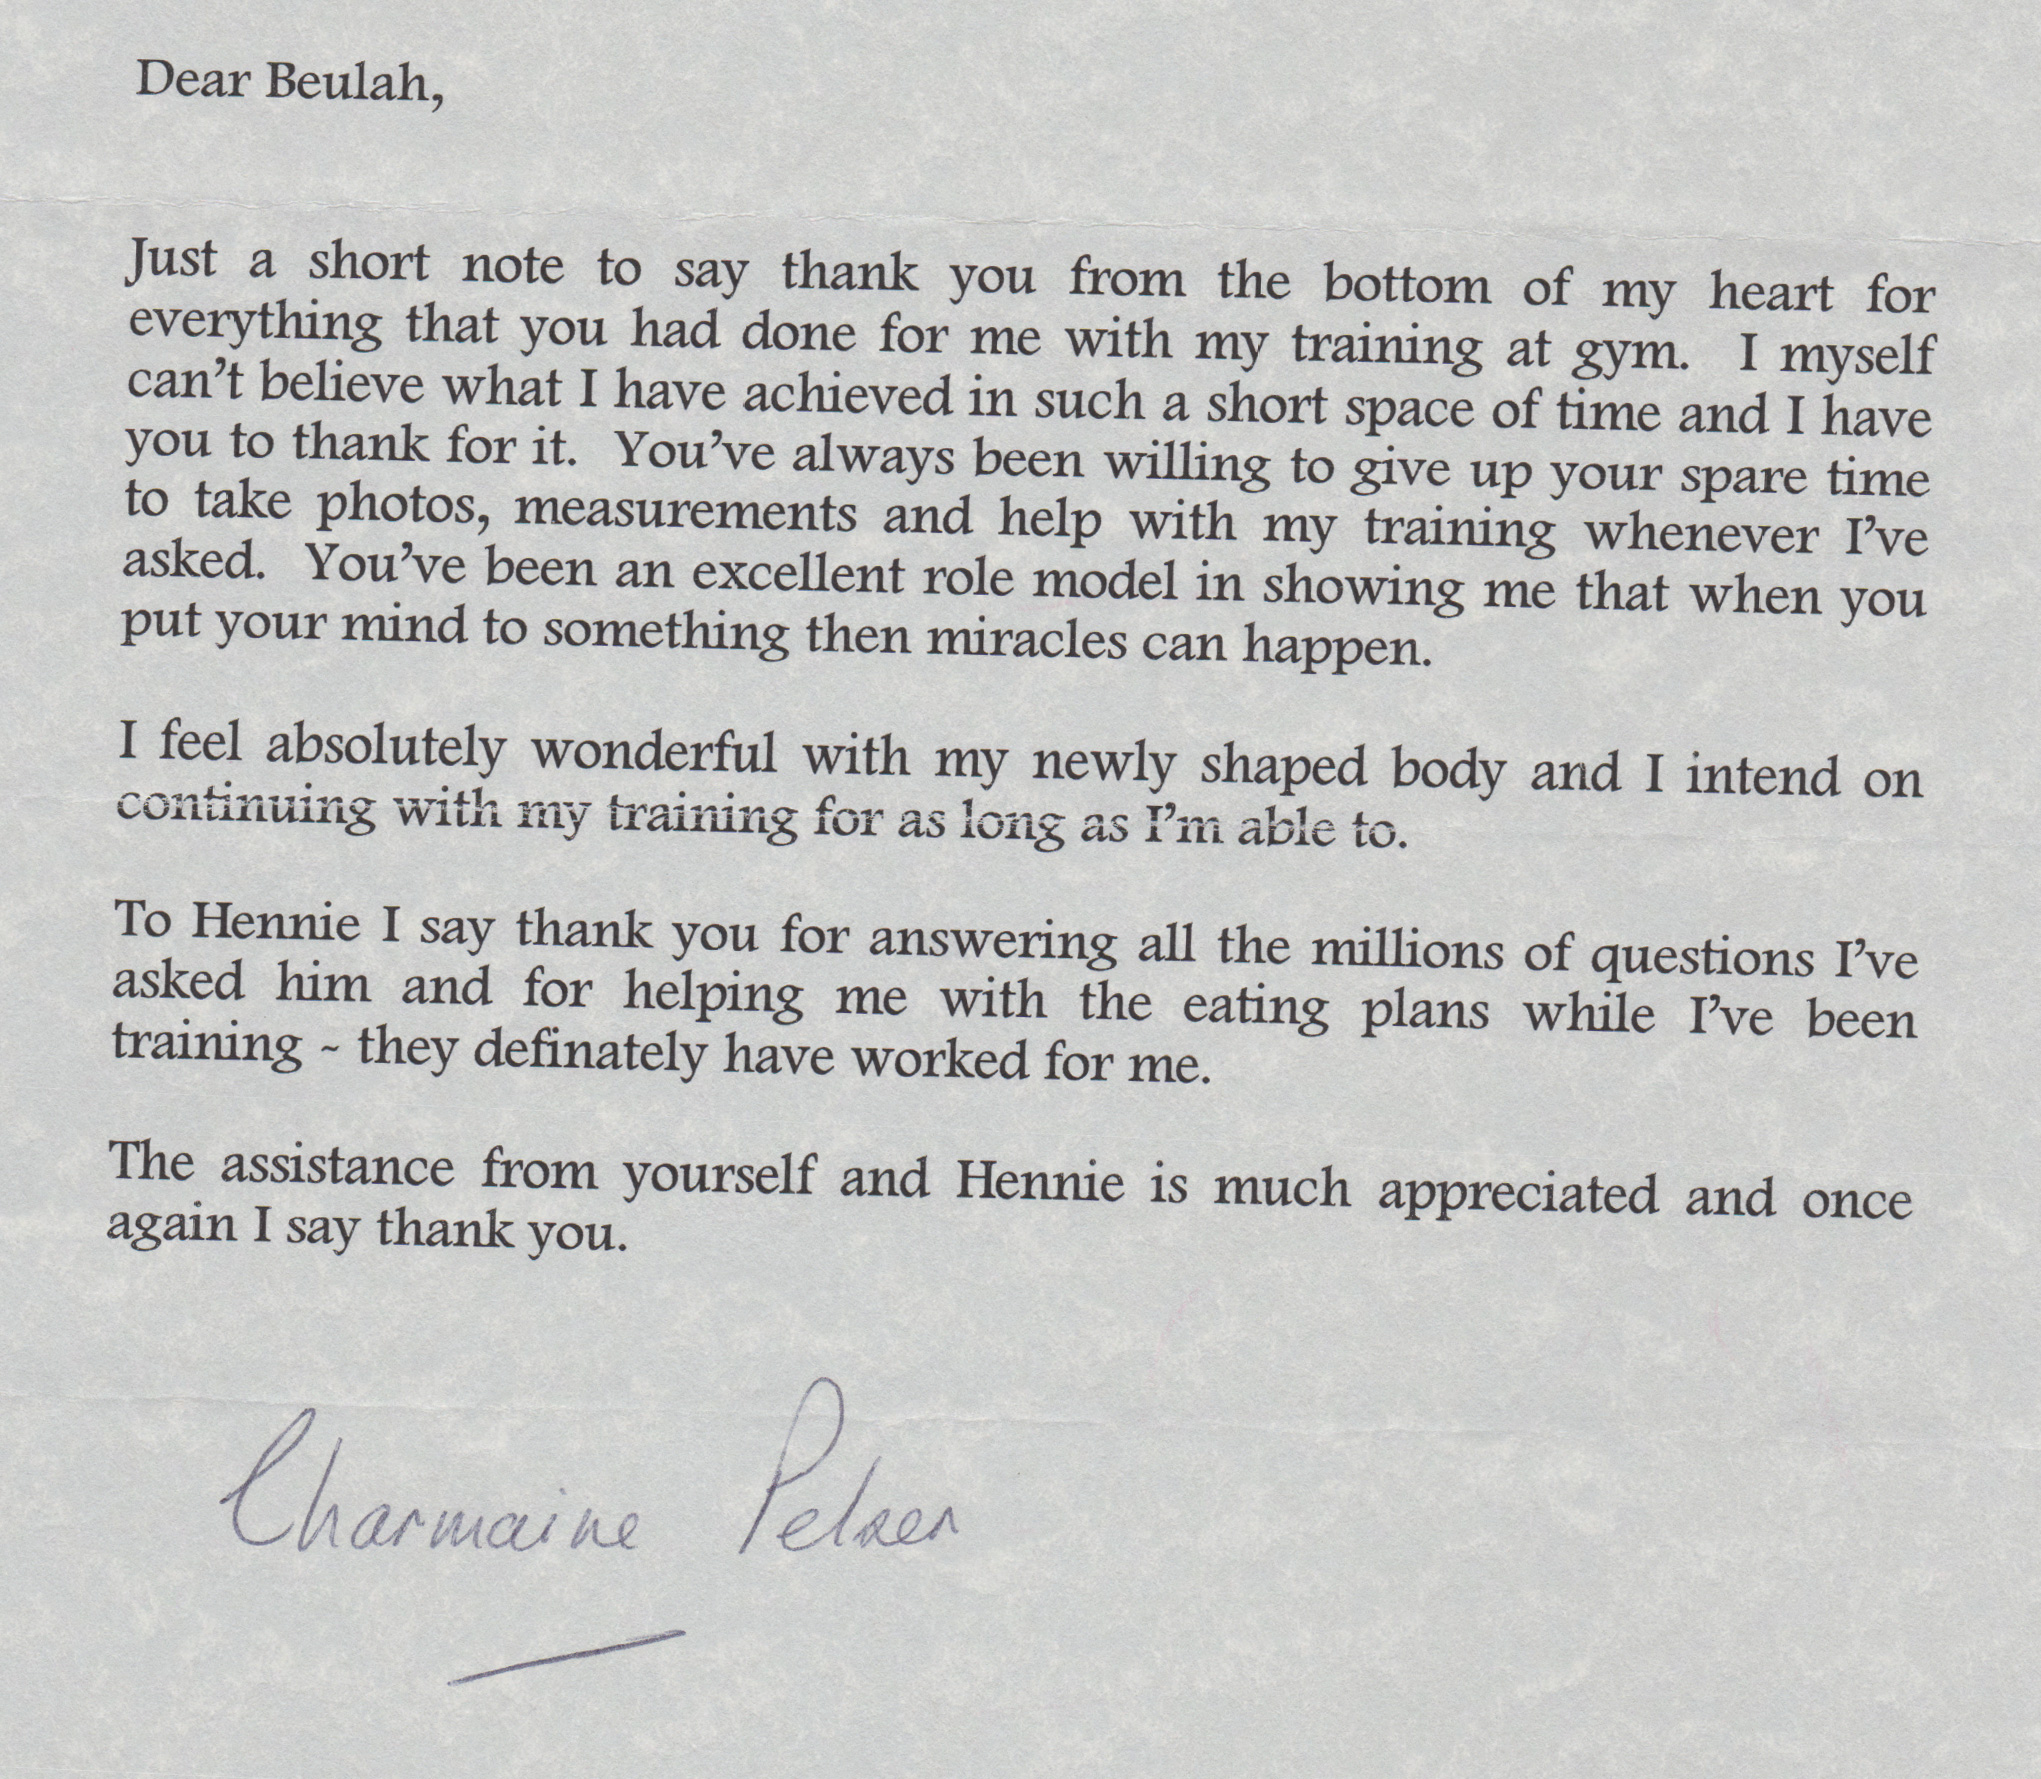 Dear Beulah,
Just a short note to say thank you from the bottom of my heart for
everything that you had done for me with my training at gym.  I myself
can't believe what I have achieved in such a short space of time and I have
you to thank for it.  You've always been willing to give up your spare time
to take photos, measurements and help with my training whenever I've
asked.  You've been an excellent role model in showing me that when you
put your mind to something then miracles can happen.
I feel absolutely wonderful with my newly shaped body and I intend on
continuing with my training for as long as I'm able to.
To Hennie I say thank you for answering all the millions of questions I've
asked him and for helping me with the eating plans while I've been
training ~ they definately have worked for me.
The assistance from yourself and Hennie is much appreciated and once
again I say thank you.
Charmaine Pelser